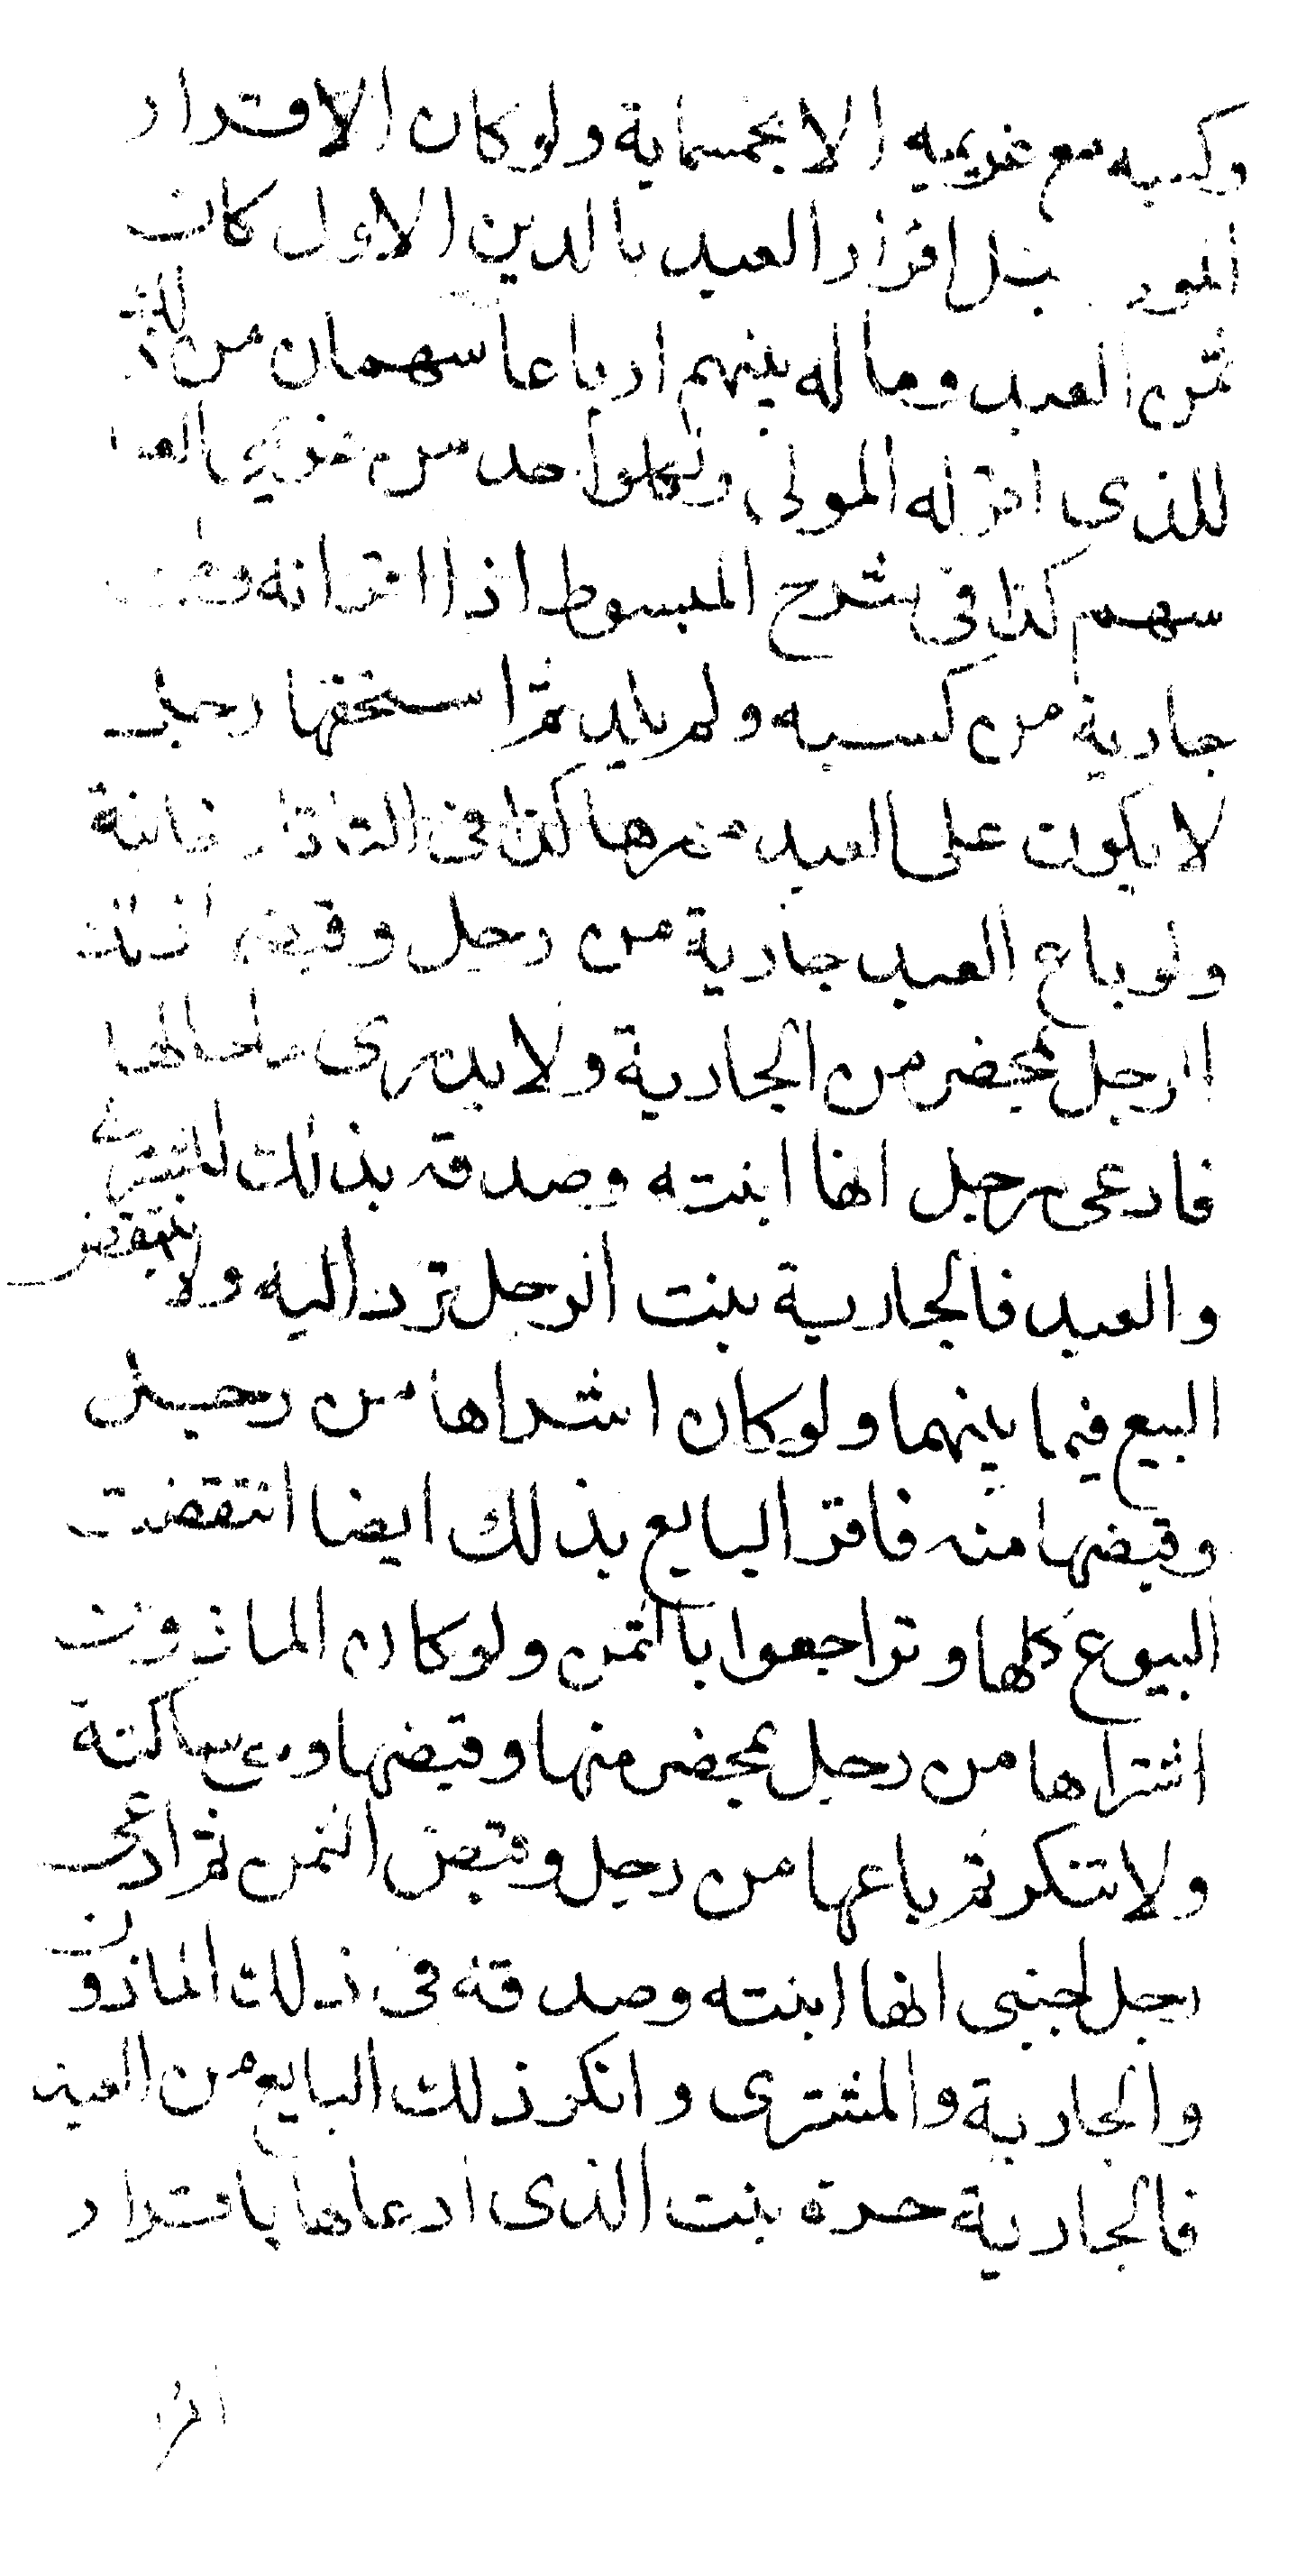 وكسبه مع غريميه الا بخمسماية ولو كان الاقرار
قبل اقرار العبد بالدين الاول كان
ثمن العبد وماله بينهم ارباعا سهمان من ذلك
للذى اقر له المولى ولكل واحد من غريمى العبد
سهم كذا فى شرح المبسوط اذا اقر انه وطى
جارية من كسبه ولم يلد ثم استحقها رجل
لا يكون على العبد مهرها كذا فى التتارخانية
ولو باع العبد جارية من رجل وقبضها ذلك
الرجل بمحضر من الجارية ولا يدرى ما حالها
فادعى رجل انها ابنته وصدقه بذلك المشترى
والعبد فالجارية بنت الرجل ترد اليه ولا ينتقض
البيع فيما بينهما ولو كان اشتراها من رجل
وقبضها منه فاقر البايع بذلك ايضا انتقضت
البيوع كلها وتراجعوا بالثمن ولو كان الماذون
اشتراها من رجل بمحضر منها وقبضها وهى ساكتة
ولا تنكر ثم باعها من رجل وقبض الثمن ثم ادعى
رجل اجنبى انها ابنته وصدقه فى ذلك الماذون
والجارية والمشترى وانكر ذلك البايع من العبد
فالجارية حرة بنت الذى ادعاها باقرار